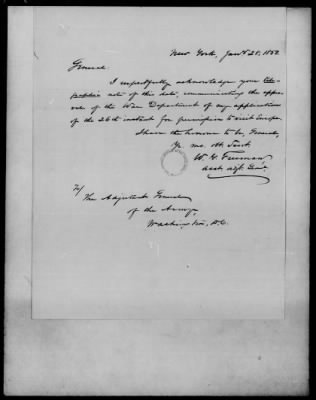 New York, Jany 28, 1852
General
I respectfully acknowledge your tele-
graphic note of this date, communicating the appro-
val of the War Department of my application
of the 26th instant for permission to visit Europe.
I have the honour to be, General,
Yr. mo. ob. Servt
W. G. Freeman
Asst. Adjt. Genl.
To/
The Adjutant General
of the Army,
Washington, D.C.